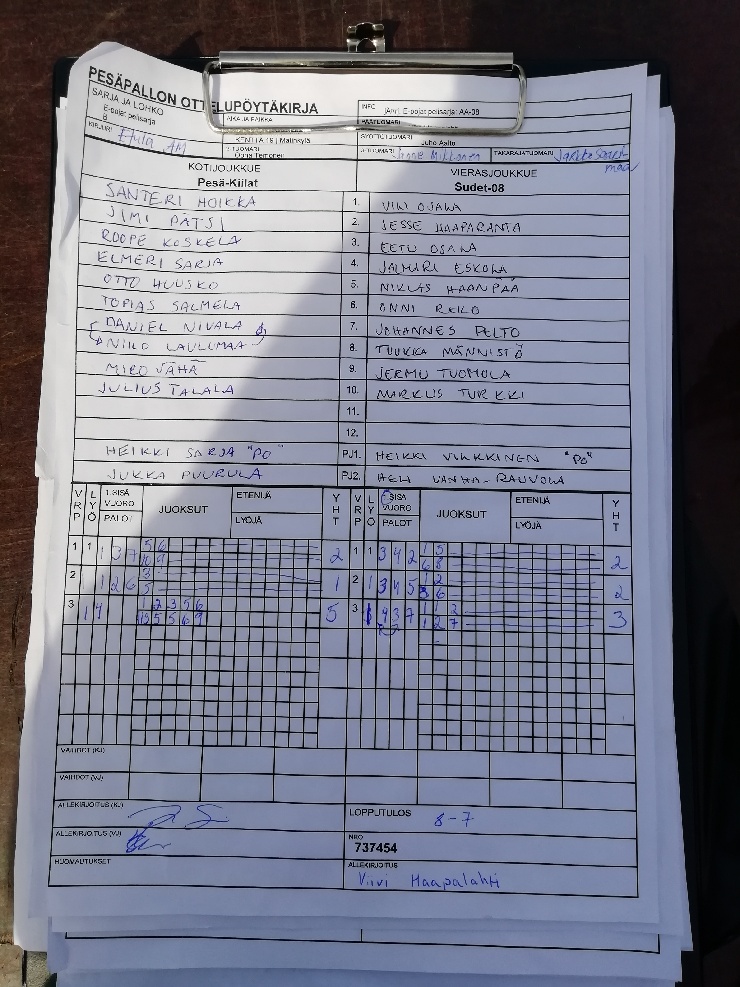 PESÄPALLON OTTELUPÖYTÄKIRJA
SARJA JA LOHKO
E-pojat pelisarja
B
AIKA JA PAIKKA
KENTTÄ 19 | Matinkylä
INFO
E-pojat pelisarja: AA-08
PÄÄTUOMARI
SYÖTTÖTUOMARI
Juho Aalto
KIRJURI
TAKARAJATUOMARI
KOTIJOUKKUE
Pesä-Kiilat
VIERASJOUKKUE
Sudet-08
SANTERI HOIKKA 1. VILI OJALA
JIMI PÄTSI 2. JESSE HAAPARANTA
ROOPE KOSKELA 3. EETU OJALA
ELMERI SARJA 4. JALMARI ESKOLA
OTTO HUUSKO 5. NIKLAS HAANPÄÄ
TOPIAS SALMELA 6. ONNI
DANIEL NIVALA 7. JOHANNES PELTO
NIILO LAULUMAA 8. TUUKKA MÄNNISTÖ
MIRO VÄHÄ 9. JERMU TUOMOLA
JULIUS TALALA 10. MARKUS TURKKI
11.
12.
HEIKKI SARJA "PO" PJ1. HEIKKI "PO"
JUKKA PUURULA PJ2. HELI VANHA-RAUVOLA
VRP LYÖ SISÄ VUORO PALOT JUOKSUT ETENIJÄ LYÖJÄ YHT VRP LYÖ SISÄ VUORO PALOT JUOKSUT ETENIJÄ LYÖJÄ YHT
1 1 1 3 7 5 6 2 1 1 3 4 2 1 5 2
10 9 6 8
2 1 2 6 3 1 2 1 3 4 5 1 2 2
5 3 6
3 1 9 1 2 3 5 6 5 3 9 3 7 1 1 2 3
5 5 6 9 1 2 7
VAIHDOT (KJ)
VAIHDOT (VJ)
ALLEKIRJOITUS (KJ)
LOPPUTULOS 8-7
ALLEKIRJOITUS (VJ)
NRO
737454
HUOMAUTUKSET
ALLEKIRJOITUS
Viivi Haapalahti